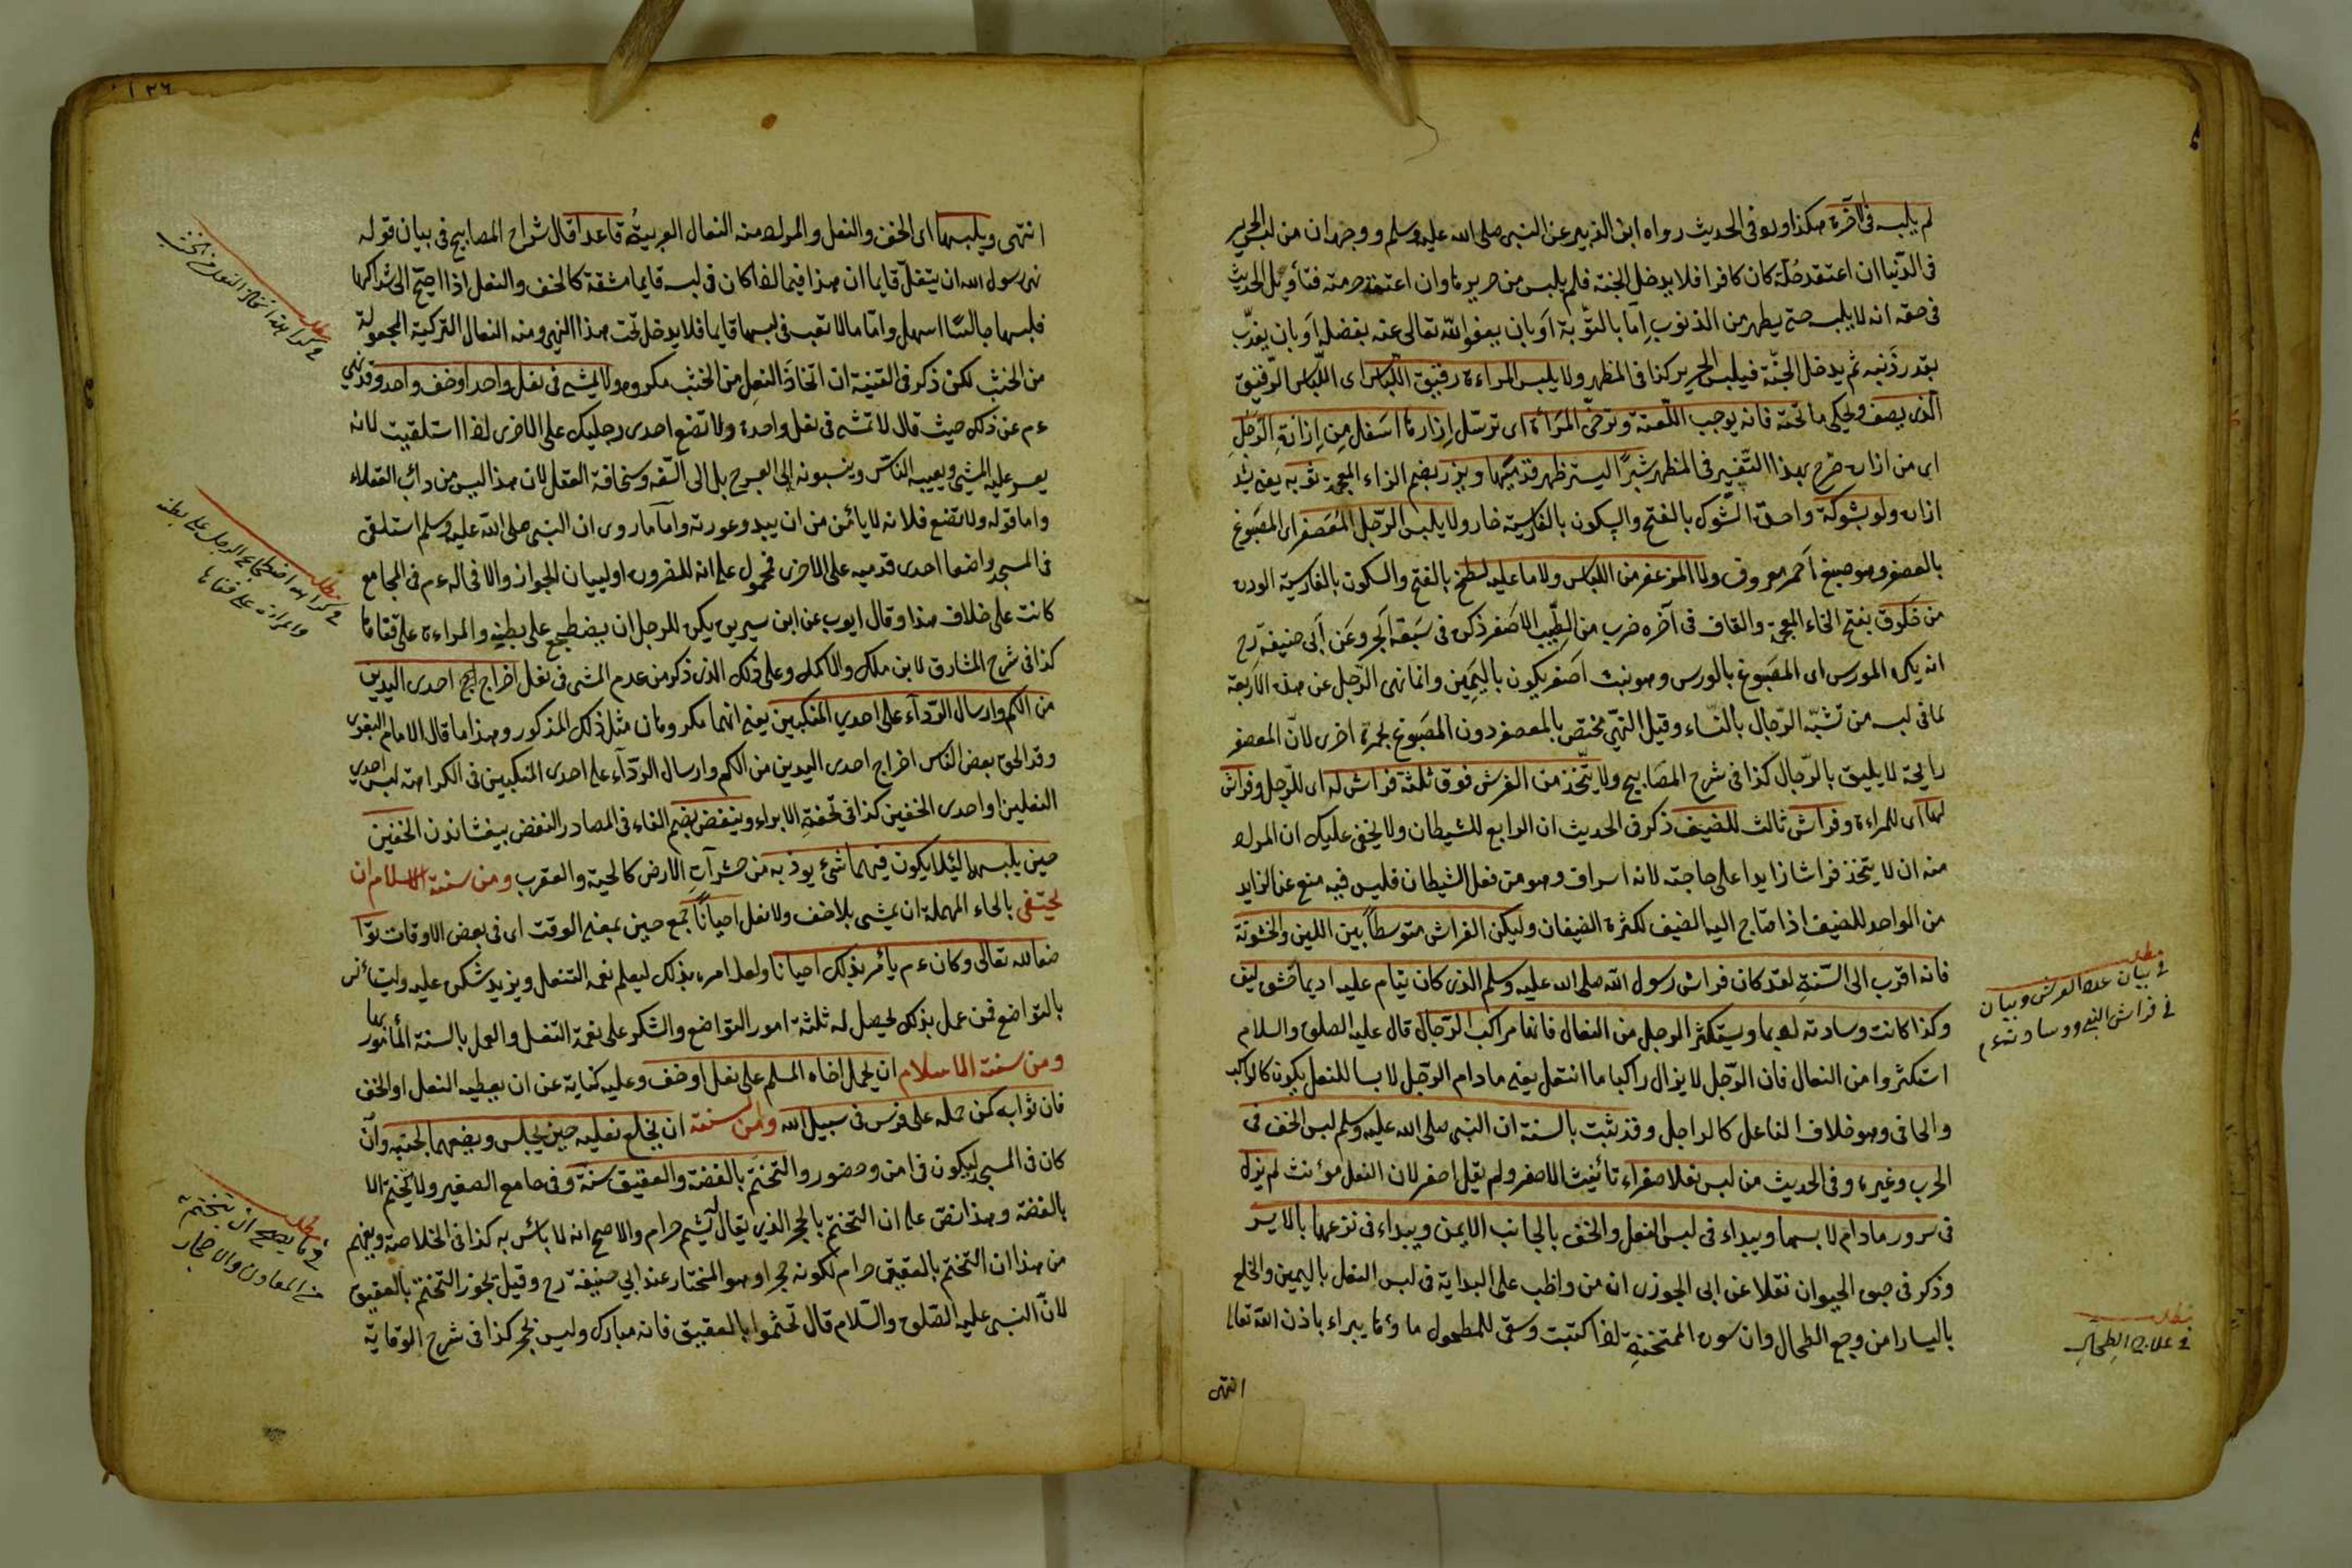 لم يلبسه في الآخرة هكذا ورد في الحديث رواه ابن الزبير عن النبي صلى الله عليه وسلم ووجهه ان من لبس الحرير
في الدنيا ان اعتقد حله كان كافرا فلا يدخل الجنة فلم يلبس من حريرها وان اعتقد حرمته فتأويل الحديث
في حقه انه لا يلبسه حتى يطهر من الذنوب إما بالتوبة أو بان يعفو الله تعالى عنه بفضله أو بان يعذب
بقدر ذنبه ثم يدخل الجنة فيلبس الحرير كذا في المظهر ولا يلبس المراءة رقيق اللباس اى اللباس الرقيق
الذى يصف ويحكى ما تحته فانه يوجب اللعنة وترخى المرأة اى ترسل إزارها أسفل من إزارة الرجل
اى من ازاره صرح بهذا التفسير في المظهر شبرا ليستر ظهر قدميها ويزر بضم الزاء المعجمة ثوبه يعنى يشد
ازاره ولو بشوكة واحدة الشوك بالفتح والسكون بالفارسية خار ولا يلبس الرجل المعصفر اى المصبوغ
بالعصفر وهو صبغ أحمر معروف ولا المزعفر من اللباس ولا ما عليه لطخ بالفتح والسكون بالفارسية الوده
من خلوق بفتح الخاء المعجمة والقاف في آخره ضرب من الطيب الاصفر ذكره في سبعة ابحر وعن أبى حنيفة رح
انه يكره المورس اى المصبوغ بالورس وهو نبت اصفر يكون باليمن وانما نهى الرجل عن هذه الاربعة
لما في لبسه من تشبه الرجال بالنساء وقيل النهى مختص بالمعصفر دون المصبوغ بحمرة اخرى لان المعصفر
رايحة لا يليق بالرجال كذا في شرح المصابيح ولا يتخذ من الفرش فوق ثلثة فراش له اى للرجل وفراش
لها اى للمراءة وفراش ثالث للضيف ذكر في الحديث ان الرابع للشيطان ولا يخفى عليك ان المراد
منه ان لا يتخذ فراشا زايدا على حاجته لانه اسراف وهو من فعل الشيطان فليس فيه منع عن الزايد
من الواحد للضيف اذا احتاج اليه الضيف لكثرة الضيفان وليكن الفراش متوسطا بين اللين والخشونة
فانه اقرب الى السنة لقد كان فراش رسول الله صلى الله عليه وسلم الذى كان ينام عليه اديما حشوه ليف
وكذا كانت وسادته اديما ويستكثر الرجل من النعال فانها مراكب الرجال قال عليه الصلوة والسلام
استكثروا من النعال فان الرجل لا يزال راكبا ما انتعل يعنى مادام الرجل لابسا للنعل يكون كالراكب
والحافى وهو خلاف الناعل كالراجل وقد ثبت بالسنة ان النبي صلى الله عليه وسلم لبس الخف في
الحرب وغيره وفي الحديث من لبس نعلا صفراء تأنيث الاصفر ولم يقل اصفر لان النعل مؤنث لم يزل
في سرور مادام لابسها ويبداء في لبس النعل والخف بالجانب الايمن ويبداء في نزعهما بالايسر
وذكر في حيوة الحيوان نقلا عن ابى الجوزى ان من واظب على البداية في لبس النعل باليمين والخلع
باليسار امن وجع الطحال وان سورة الممتحنة اذا كتبت وسقى للمطحول ماؤها يبراء باذن الله تعالى
انتهى
مطلب
في بيان عدد الفرش وبيان
في فراش النبي ووسادته ءم
مطلب
في علاج الطحال
١٢٦
انتهى ويلبسها اى الخف والنعل والمراد منه النعال العربية قاعدا قال شراح المصابيح في بيان قوله
نهى رسول الله ان يتنعل قايما ان هذا فيما اذا كان في لبسه قايما مشقة كالخف والنعل اذا احتيج الى شد شراكها
فلبسها جالسا اسهل واما ما لا تعب في لبسها قايما فلا يدخل تحت هذا النهى ومنه النعال التركية المجعولة
من الخشب لكن ذكر في القنية ان اتخاذ النعل من الخشب مكروه ولا يمشى في نعل واحد او خف واحد وقد نهى
ءم عن ذلك حيث قال لا تمش في نعل واحدة ولا تضع احدى رجليك على الاخرى اذا استلقيت لانه
يعسر عليه المشى ويعيبه الناس وينسبونه الى العرج بل الى السفه وسخافة العقل لان هذا ليس من دأب العقلاء
واما قوله ولا تضع فلانه لا يائمن من ان يبدو عورته وأما ما روى ان النبي صلى الله عليه وسلم استلقى
في المسجد واضعا احدى قدميه على الاخرى فمحمول على انه للضرورة او لبيان الجواز والا فحاله ءم في المجامع
كانت على خلاف هذا وقال ايوب عن ابن سيرين يكره للرجل ان يضطجع على بطنه والمراءة على قفاها
كذا في شرح المشارق لابن ملك والاكمل وعلى ذلك الذى ذكر من عدم المشى في نعل اخراج احدى اليدين
من الكم وارسال الرداء على احدى المنكبين يعنى انهما مكروهان مثل ذلك المذكور وهذا ما قال الامام البغوى
وقد الحق بعض الناس اخراج احدى اليدين من الكم وارسال الرداء على احدى المنكبين في الكراهة لبس احدى
النعلين او احدى الخفين كذا في تحفة الابرار وينفض بضم الفاء في المصادر النفض بيفشاندن الخفين
حين يلبسهما لئلا يكون فيهما شىء يوذيه من حشرات الارض كالحية والعقرب ومن سنة الاسلام ان
يحتفى بالحاء المهملة ان يمشى بلا خف ولا نعل احيانا جمع حين بمعنى الوقت اى في بعض الاوقات توا
ضعا لله تعالى وكان ءم يأمر بذلك احيانا ولعل امره بذلك ليعلم نعمة التنعل ويزيد شكره عليه وليتأنس
بالتواضع فمن عمل بذلك يحصل له ثلثة امور التواضع والشكر على نعمة التنعل والعمل بالسنة المأمور بها
ومن سنة الاسلام ان يحمل اخاه المسلم على نعل او خف وعليه كناية عن ان يعطيه النعل او الخف
فان ثوابه كمن حمله على فرس في سبيل الله ومن السنة ان يخلع نعليه حين يجلس ويضعهما بجنبه وان
كان في المسجد ليكون في امن وحضور والتختم بالفضة والعقيق سنة وفي جامع الصغير ولا يختم الا
بالفضة وهذا نص على ان التختم بالحجر الذى يقال له يشم حرام والاصح انه لا بائس به كذا في الخلاصة ويفهم
من هذا ان التختم بالعقيق حرام لكونه حجرا وهو المختار عند ابى حنيفة رح وقيل يجوز التختم بالعقيق
لان النبي عليه الصلوة والسلام قال تختموا بالعقيق فانه مبارك وليس بحجر كذا في شرح الوقاية
مطلب
في كراهة اتخاذ النعل من الخشب
مطلب
في كراهة اضطجاع الرجل على بطنه
وامراءته على قفاها
مطلب
في ما يصح ان يتختم به
من المعادن والاحجار